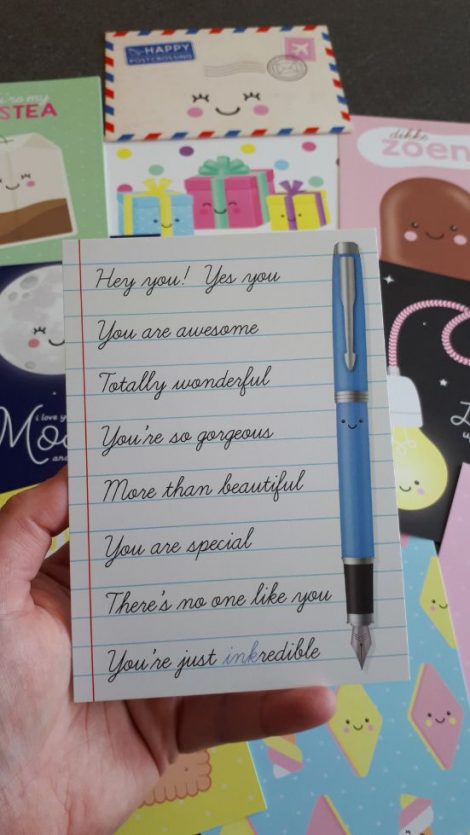 HAPPY
POSTCROSSING
my
TEA
dikke
zoen
Hey you! Yes you
You are awesome
Totally wonderful
You're so gorgeous
More than beautiful
You are special
There's no one like you
You're just inkredible
i love you